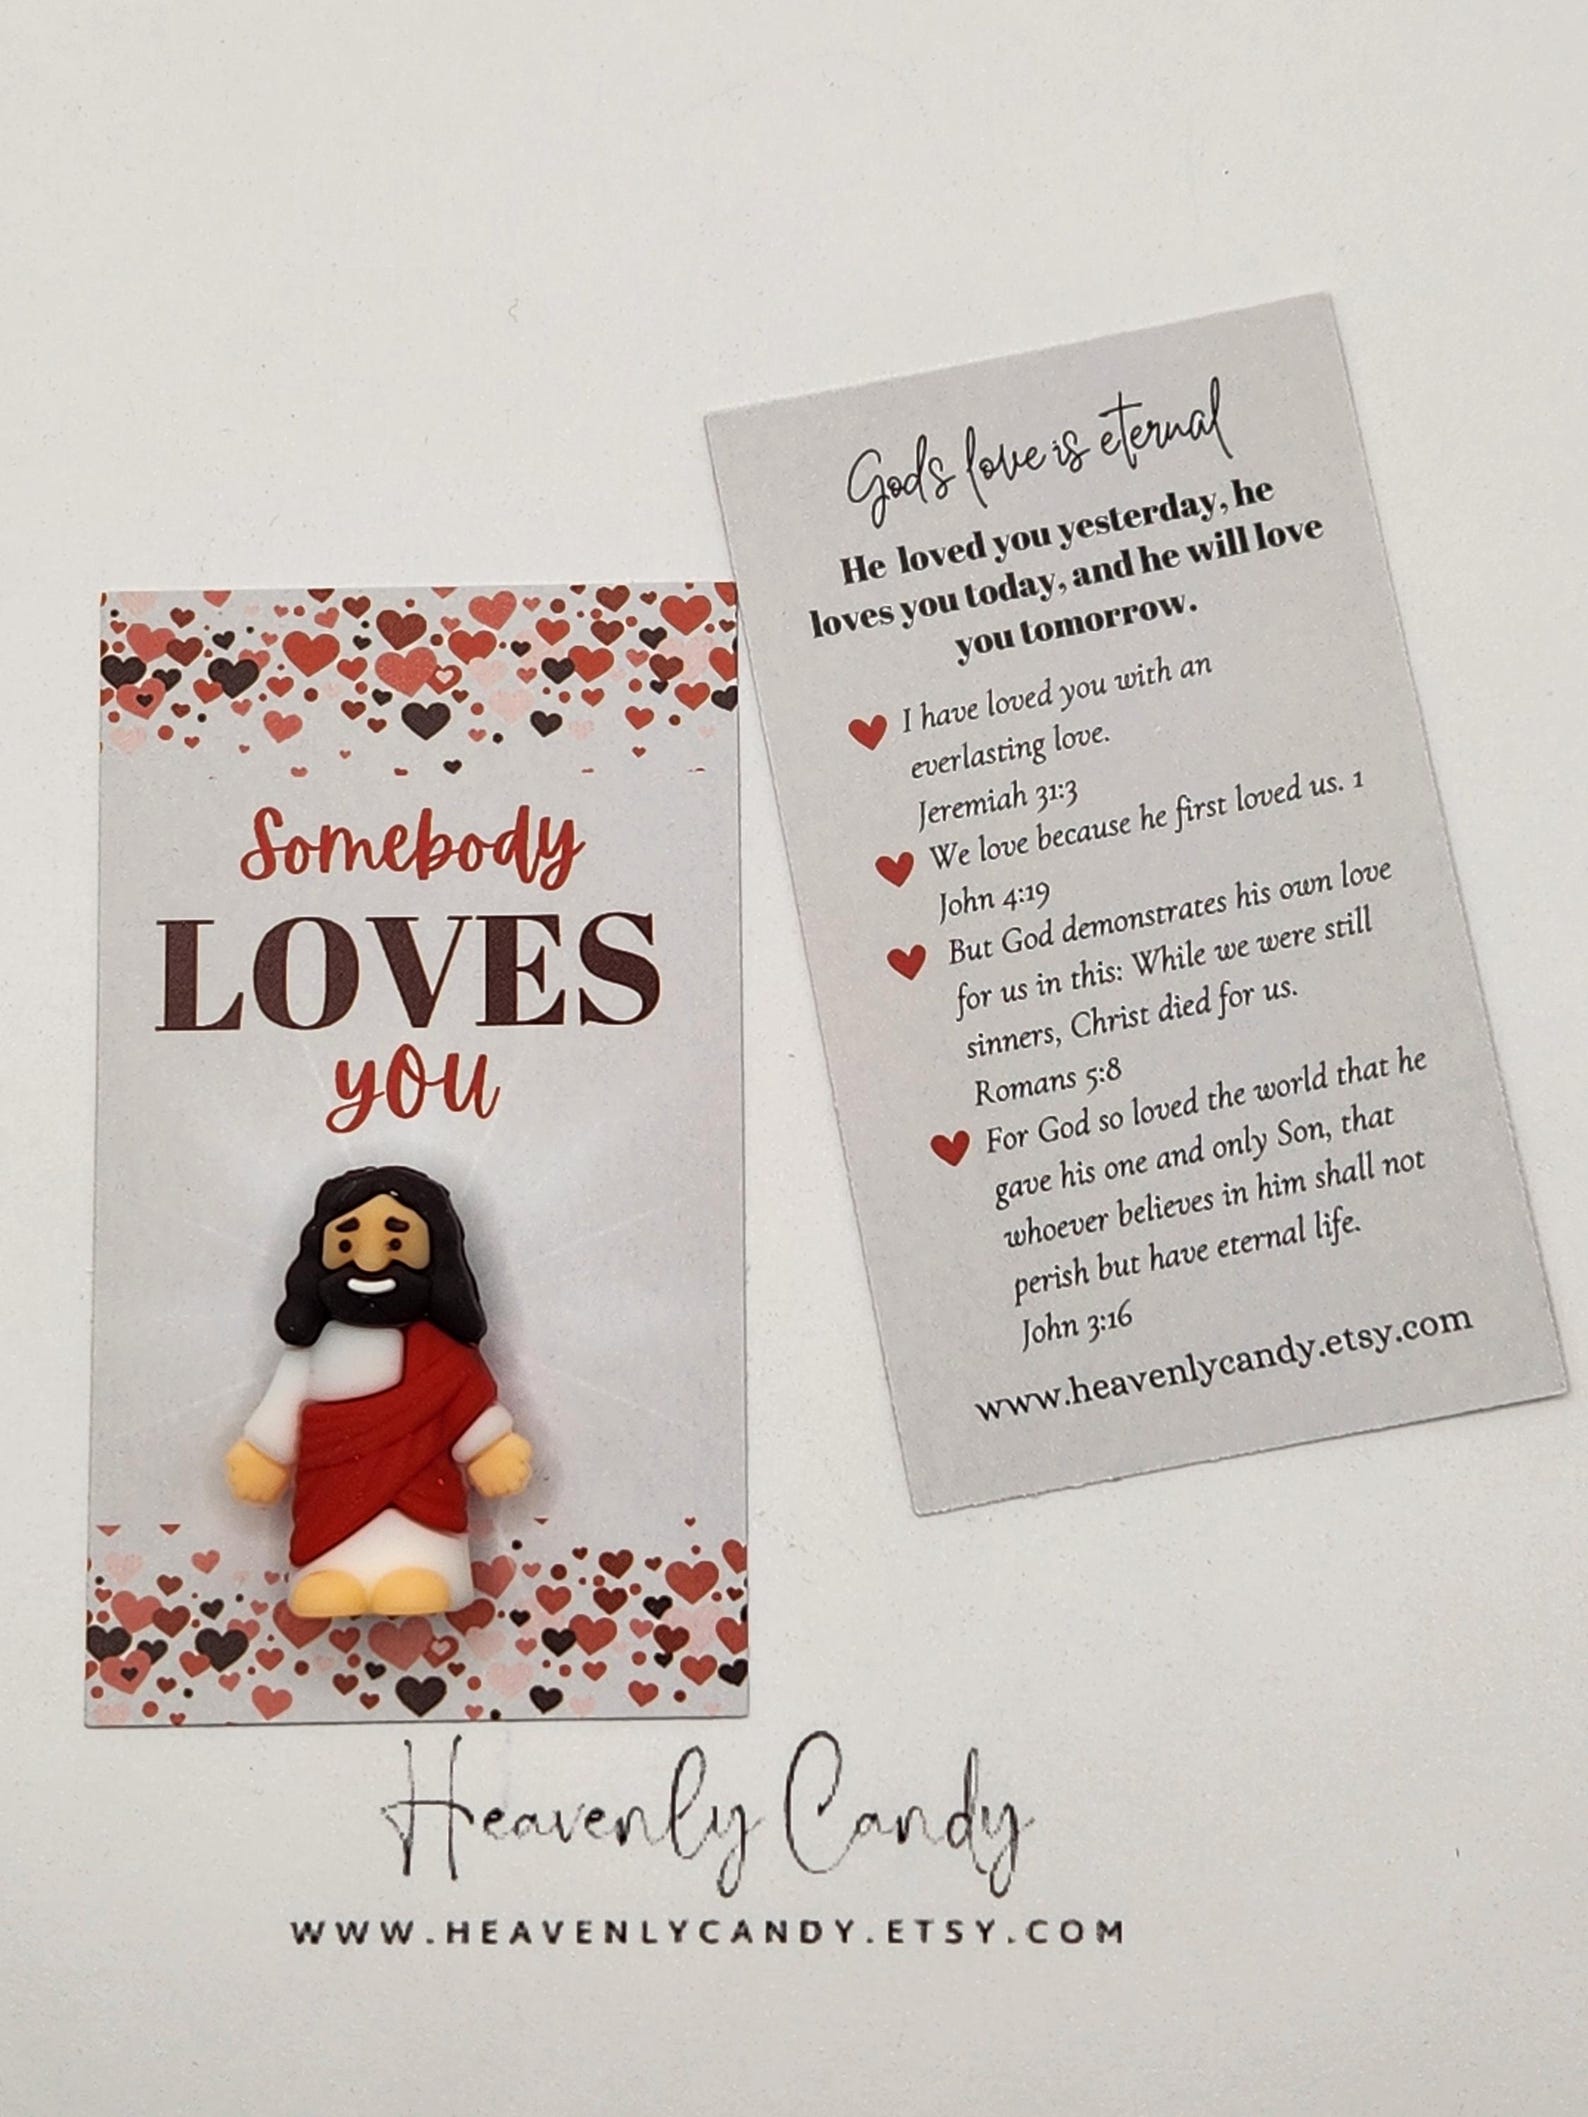 Somebody
LOVES
you
God's love is eternal
He loved you yesterday, he
loves you today, and he will love
you tomorrow.
I have loved you with an
everlasting love.
Jeremiah 31:3
We love because he first loved us. 1
John 4:19
But God demonstrates his own love
for us in this: While we were still
sinners, Christ died for us.
Romans 5:8
For God so loved the world that he
gave his one and only Son, that
whoever believes in him shall not
perish but have eternal life.
John 3:16
www.heavenlycandy.etsy.com
Heavenly Candy
WWW.HEAVENLYCANDY.ETSY.COM